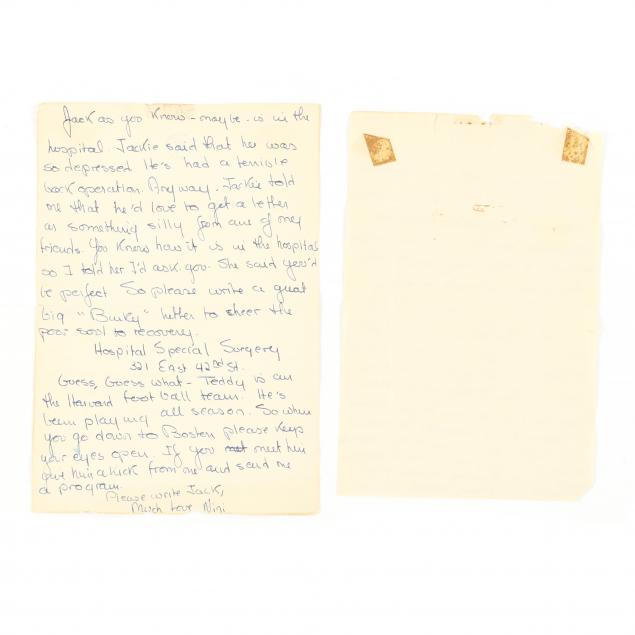 Jack as you know - maybe - is in the
hospital. Jackie said that he was
so depressed. He's had a terrible
back operation. Anyway - Jackie told
me that he'd love to get a letter
or something silly from one of my
friends. You know how it is in the hospital
so I told her I'd ask you. She said you'd
be perfect So please write a great
big "Bucky" letter to cheer the
poor soul to recovery.
Hospital Special Surgery
321 East 42nd St.
Guess, Guess what - Teddy is on
the Harvard football team. He's
been playing all season. So when
you go down to Boston please keep
your eyes open. If you meet him
give him a kick from me and send me
a program.
Please write Jack,
Much Love Nini